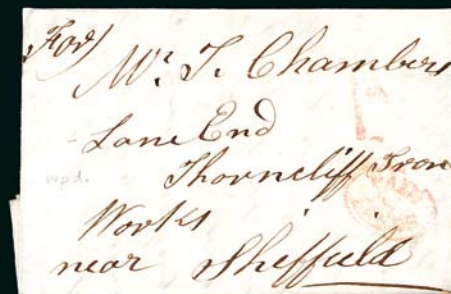 For
Mr. T. Chambers
Lane End
wpd.
Thorncliff Iron
Works
near Sheffield